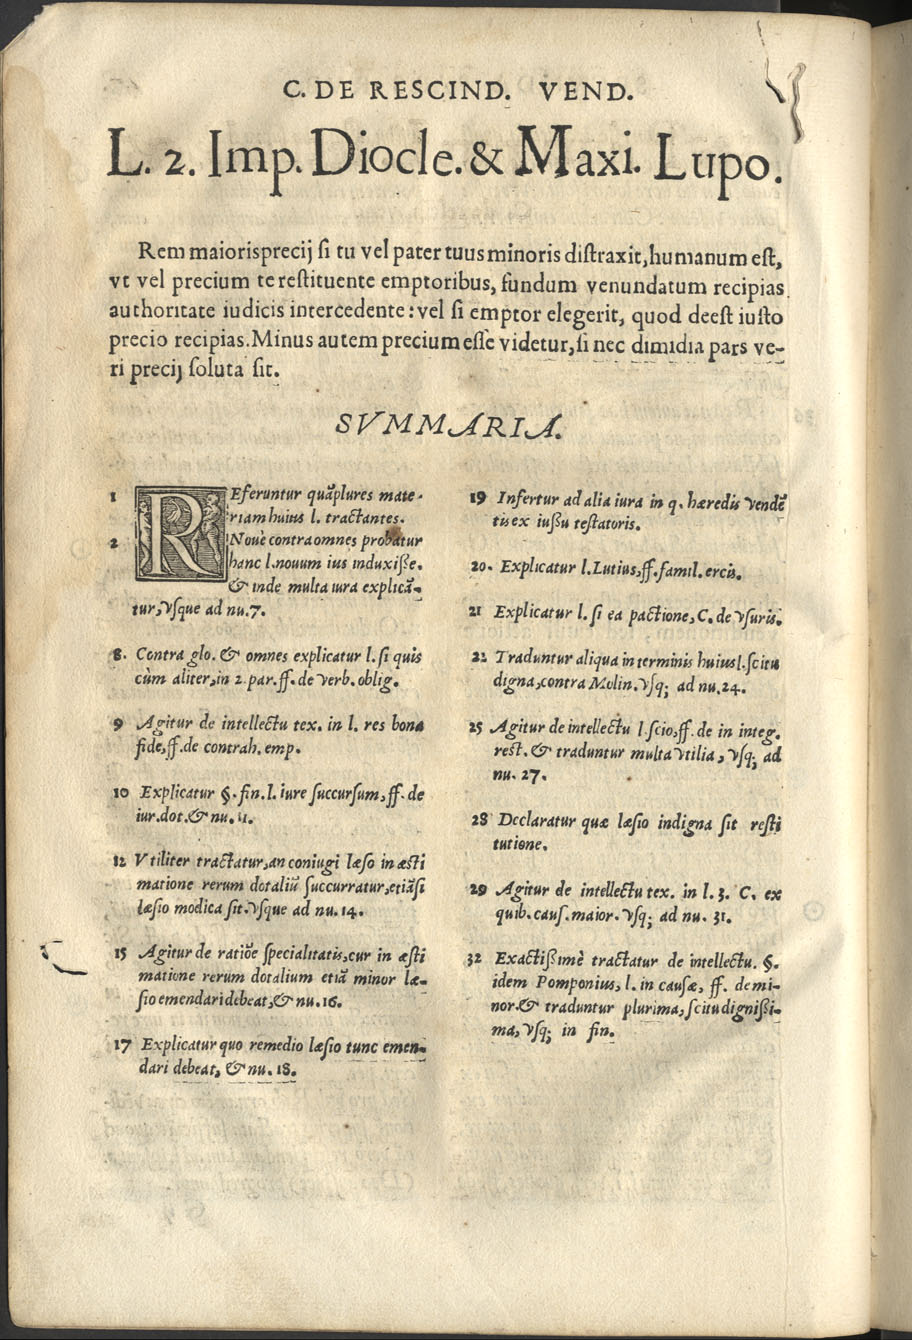 C. DE RESCIND. VEND.
L. 2. Imp. Diocle. & Maxi. Lupo.
Rem maiorisprecij ſi tu vel pater tuus minoris diſtraxit, humanum eſt,
vt vel precium te reſtituente emptoribus, fundum venundatum recipias
authoritate iudicis intercedente: vel ſi emptor elegerit, quod deeſt iuſto
precio recipias. Minus autem precium eſſe videtur, ſi nec dimidia pars ve-
ri precij ſoluta ſit.
SVMMARIA.
1 REferuntur quãplures mate-
riam huius l. tractantes.
2 Nouè contra omnes probatur
hanc l. nouum ius induxiſſe.
& inde multa iura explicã-
tur, vſque ad nu. 7.
8. Contra glo. & omnes explicatur l. ſi quis
cùm aliter, in 2. par. ff. de verb. oblig.
9 Agitur de intellectu tex. in l. res bona
fide, ff. de contrah. emp.
10 Explicatur §. fin. l. iure ſuccurſum, ff. de
iur. dot. & nu. 11.
12 Vtiliter tractatur, an coniugi læſo in æſti
matione rerum dotaliũ ſuccurratur, etiãſi
læſio modica ſit. vſque ad nu. 14.
15 Agitur de ratiõe ſpecialitatis, cur in æſti
matione rerum dotalium etiã minor læ-
ſio emendari debeat, & nu. 16.
17 Explicatur quo remedio læſio tunc emen-
dari debeat, & nu. 18.
19 Infertur ad alia iura in q. hæredis vendẽ
tis ex iuſſu teſtatoris.
20. Explicatur l. Lutius, ff. famil. ercis.
21 Explicatur l. ſi ea pactione, C. de vſuris.
22 Traduntur aliqua in terminis huius l. ſcitu
digna, contra Molin. vſq; ad nu. 24.
25 Agitur de intellectu l. ſcio, ff. de in integ.
reſt. & traduntur multa vtilia, vſq; ad
nu. 27.
28 Declaratur quæ læſio indigna ſit reſti
tutione.
29 Agitur de intellectu tex. in l. 3. C. ex
quib. cauſ. maior. vſq; ad nu. 31.
32 Exactiſsimè tractatur de intellectu. §.
idem Pomponius, l. in cauſæ, ff. de mi-
nor. & traduntur plurima, ſcitu digniſsi-
ma, vſq; in fin.